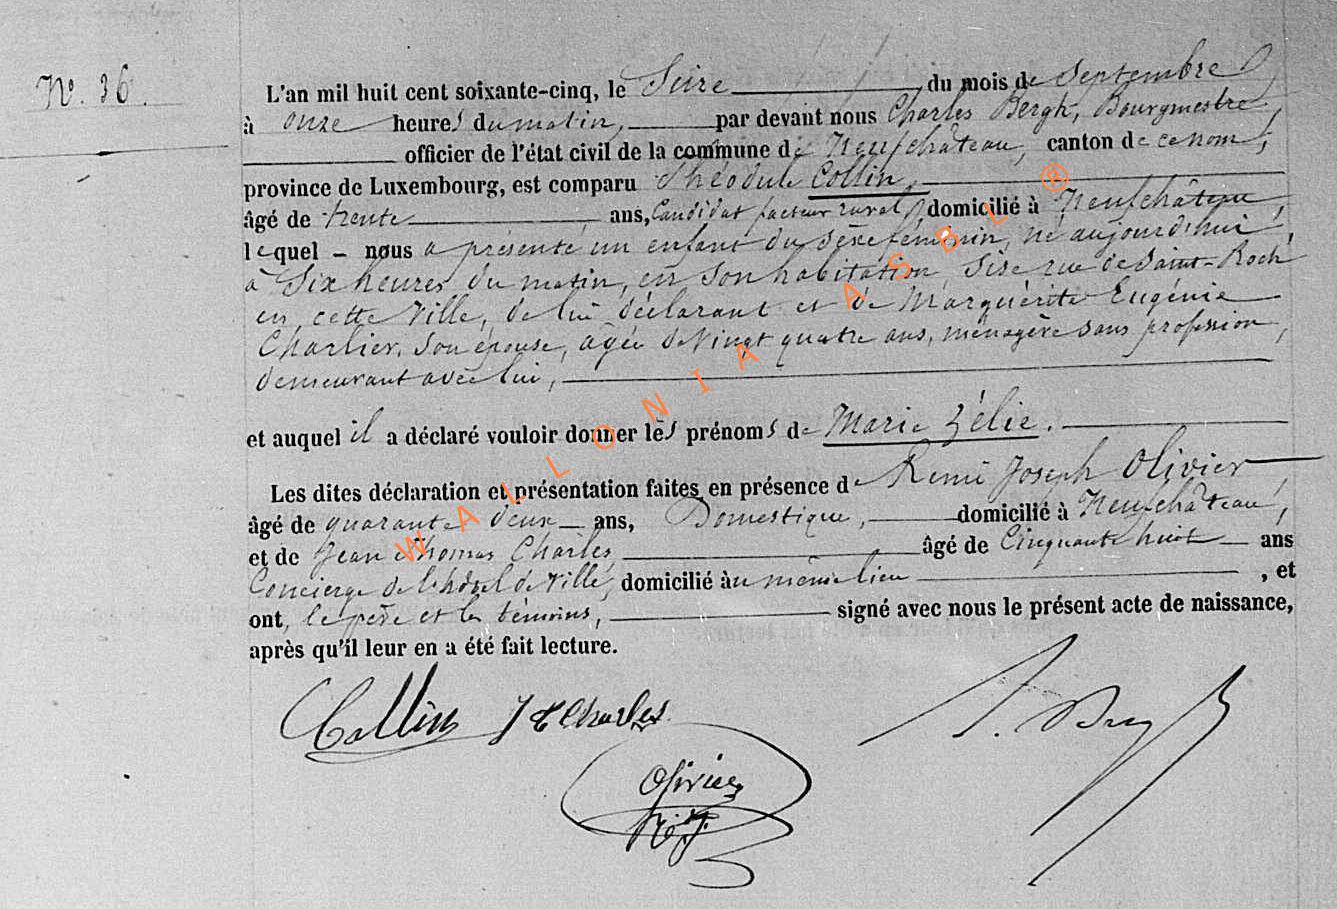 N°. 36.
L'an mil huit cent soixante-cinq, le Seize du mois de Septembre
à onze heures du matin, par devant nous Charles Bergh, Bourgmestre
officier de l'état civil de la commune de Neufchâteau, canton de ce nom,
province de Luxembourg, est comparu Théodule Collin,
âgé de trente ans, Candidat facteur rural, domicilié à Neufchâteau,
lequel - nous a présenté un enfant du sexe féminin, né aujourd'hui,
à Six heures du matin, en son habitation, Sise rue de Saint-Roch
en cette Ville, de lui déclarant et de Marguérite Eugénie
Charlier, son épouse, âgée de Vingt quatre ans, ménagère sans profession,
demeurant avec lui,
et auquel il a déclaré vouloir donner les prénoms de Marie Zélie.
Les dites déclaration et présentation faites en présence de Remi Joseph Olivier
âgé de quarante deux ans, Domestique, domicilié à Neufchâteau,
et de Jean Thomas Charles âgé de Cinquante huit ans
Concierge de l'hôtel de Ville, domicilié au même lieu , et
ont, le père et les témoins, signé avec nous le présent acte de naissance,
après qu'il leur en a été fait lecture.
Collin J T Charles
Olivier
R. J.
WALLONIA ASBL ®